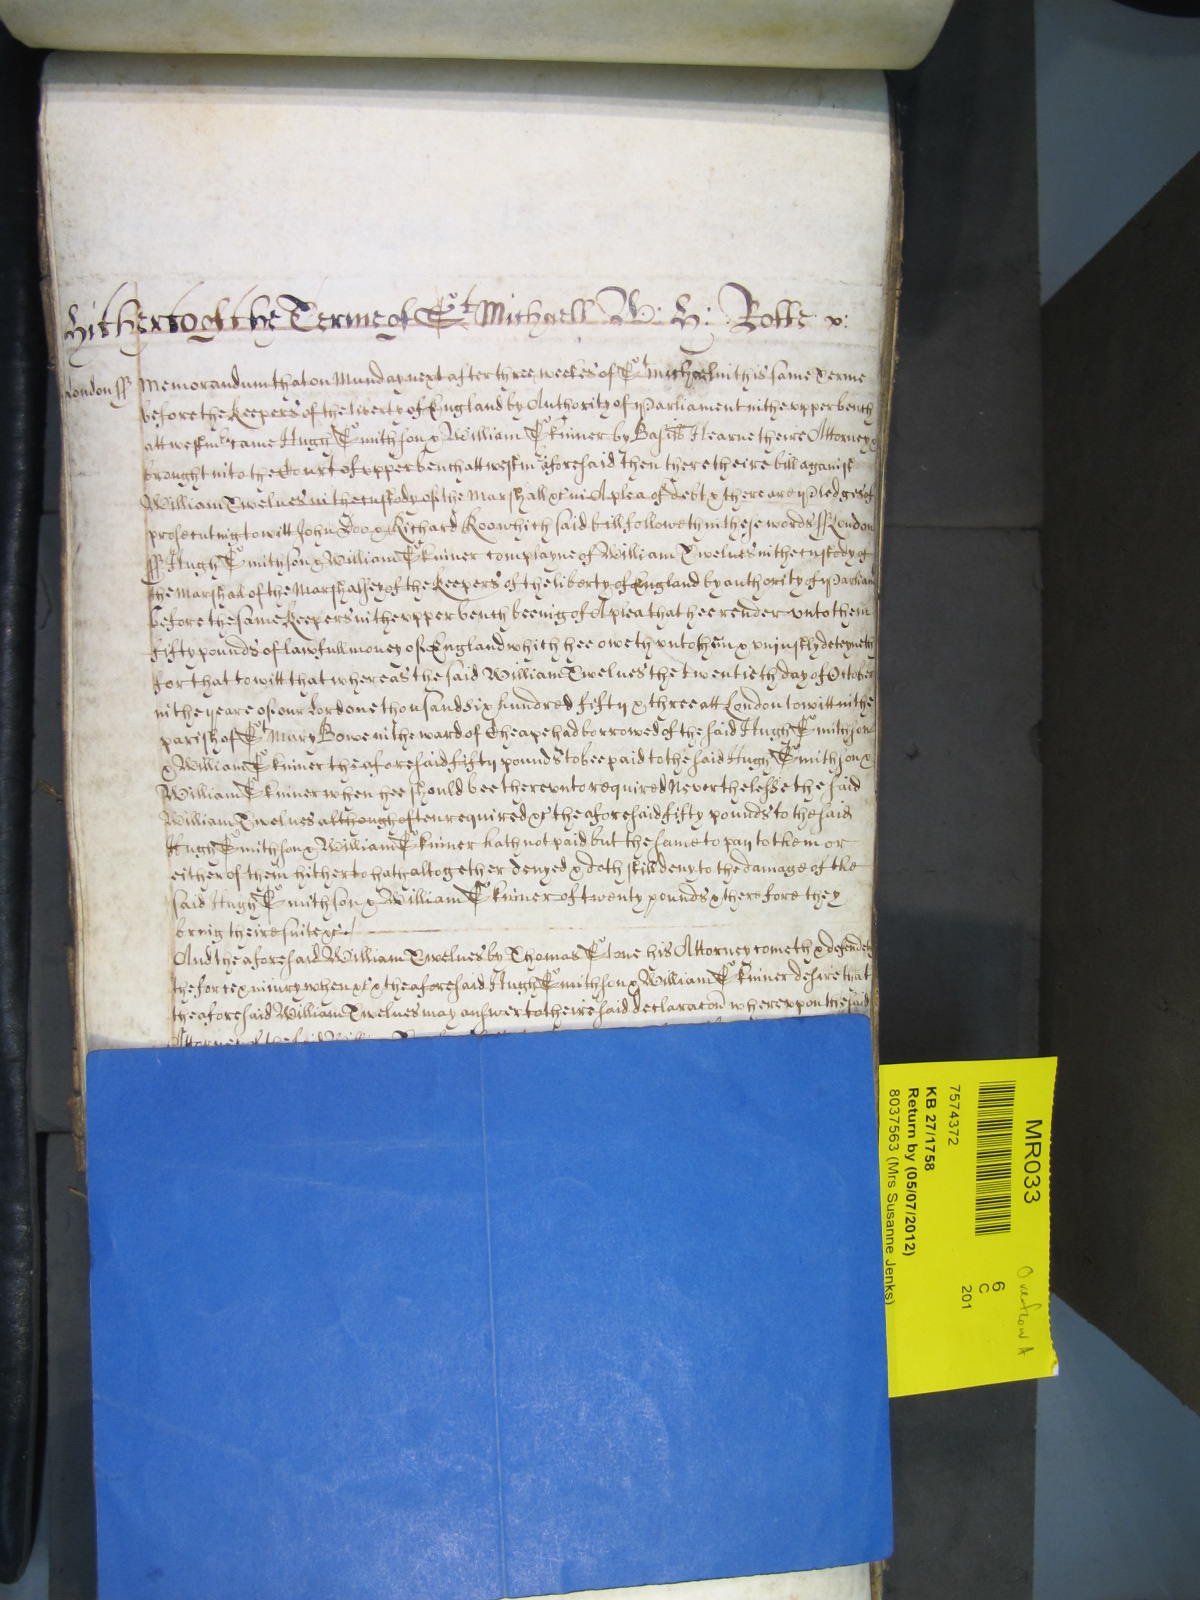 Hitherto of the Terme of St Michaell W: H: Rolle x:
London ss Memorandum that on Munday next after three weekes of St Michael in this same Terme
before the Keepers of the liberty of England by Authority of Parliament in the upper bench
att westmr came Hugh Smithson & William Skinner by Basill Hearne theire Attorney &
brought into the Court of upper bench att westm aforesaid then there theire bill against
William Twelues in the custody of the Marshall &c in A plea of debt & there are Pledges of
prosecuting to witt John Doo & Richard Roo which said bill followeth in these words ss London
ss Hugh Smithson & William Skinner complayne of William Twelues in the custody of
the Marshall of the Marshalsey of the Keepers of the liberty of England by authority of Parliam
before the same Keepers in the upper bench beeing of A plea that hee render vnto them
fifty pounds of lawfull money of England which hee oweth vnto them & vniustly deteyneth
for that to witt that whereas the said William Twelues the twentieth day of October
in the yeare of our Lord one thousand six hundred fifty & three att London to witt in the
parish of St Mary Bowe in the ward of Cheape had borrowed of the said Hugh Smithson
& William Skinner the aforesaid fifty pounds to bee paid to the said Hugh Smithson &
William Skinner when hee should bee therevnto required Neverthelesse the said
William Twelues although often required &c the aforesaid fifty pounds to the said
Hugh Smithson & William Skinner hath not paid but the same to pay to them or
either of them hitherto hath altogether denyed & doth still deny to the damage of the
said Hugh Smithson & William Skinner of twenty pounds & therefore they
bring theire suite &c
And the aforesaid William Twelues by Thomas Stone his Attorney cometh & defendeth
the force & iniury when &c & the aforesaid Hugh Smithson & William Skinner desire that
the aforesaid William Twelues may answer to theire said declaracon wherevpon the said
Attorney of the said William
MR033
7574372
KB 27/1758
Return by (05/07/2012)
8037563 (Mrs Susanne Jenks)
6
C
201
Overflow A